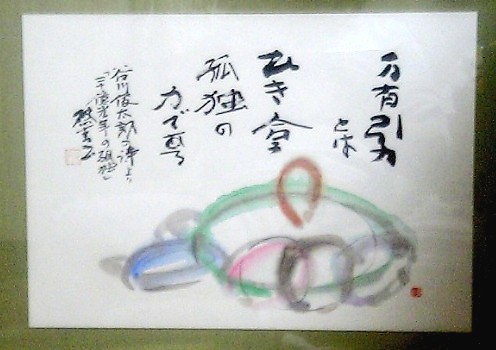 万有引力
とは
ひき合う
孤独の
力である
谷川俊太郎の詩より
「二十億光年の孤独」